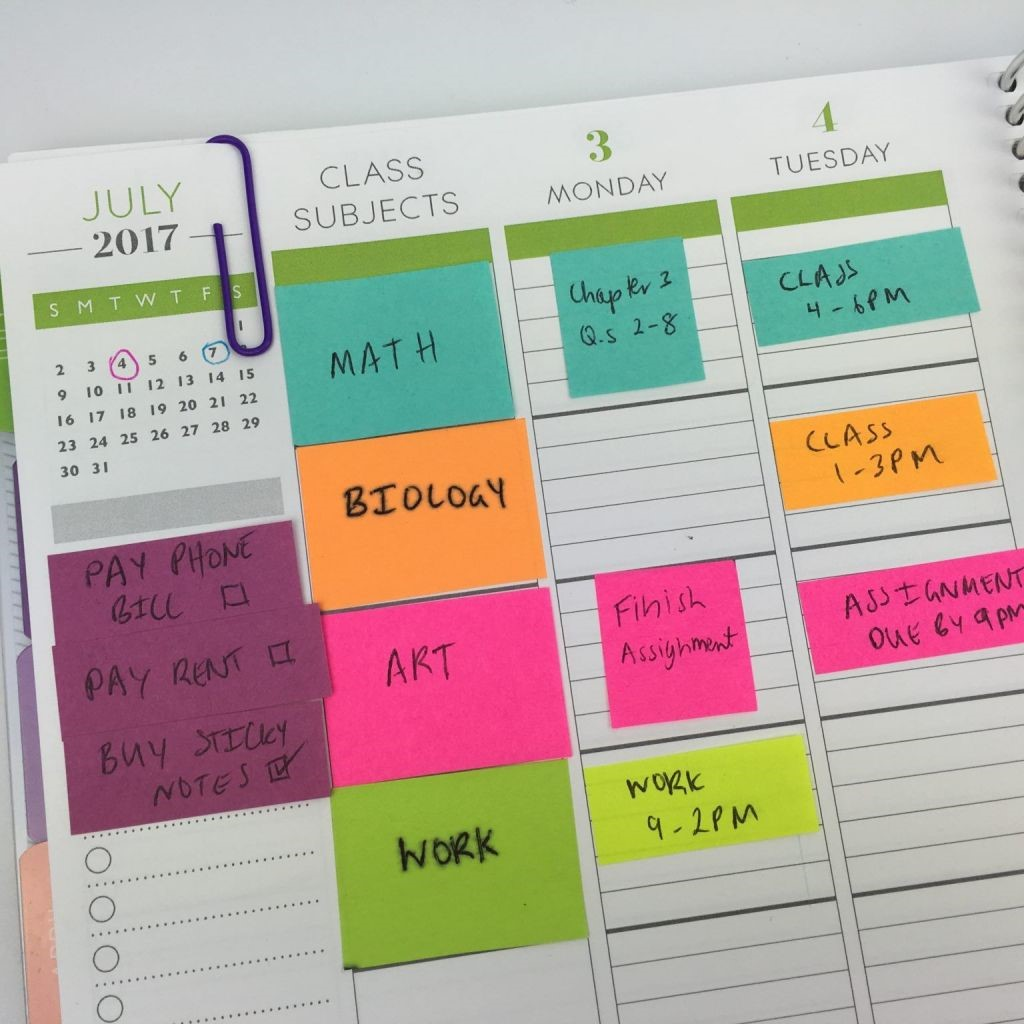 JULY
2017
S M T W T F S
1
2 3 4 5 6 7
9 10 11 12 13 14 15
16 17 18 19 20 21 22
23 24 25 26 27 28 29
30 31
PAY PHONE
BILL
PAY RENT
BUY STICKY
NOTES
CLASS
SUBJECTS
MATH
BIOLOGY
ART
WORK
3
MONDAY
Chapter 3
Q.s 2-8
Finish
Assignment
WORK
9-2PM
4
TUESDAY
CLASS
4-6PM
CLASS
1-3PM
ASSIGNMENT
DUE BY 9PM